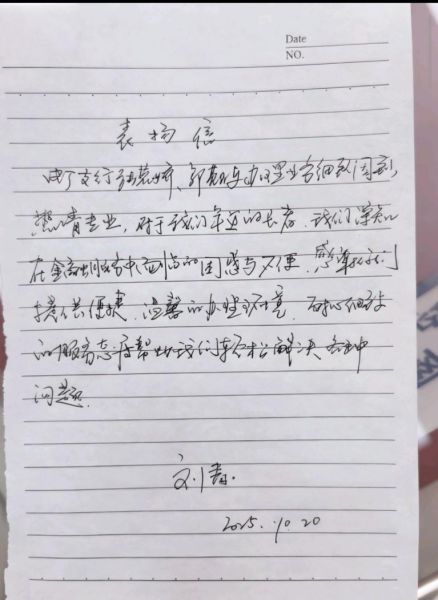 Date
NO.
表扬信
支行 办理业务细致周到,
热情专业,对于我们年迈的长者,我们深知
在金融业务中面临的困惑与不便,感
提供便捷、温馨的办理环境,耐心细致
的服务态度帮助我们轻松解决
问题.
刘
2025.10.20